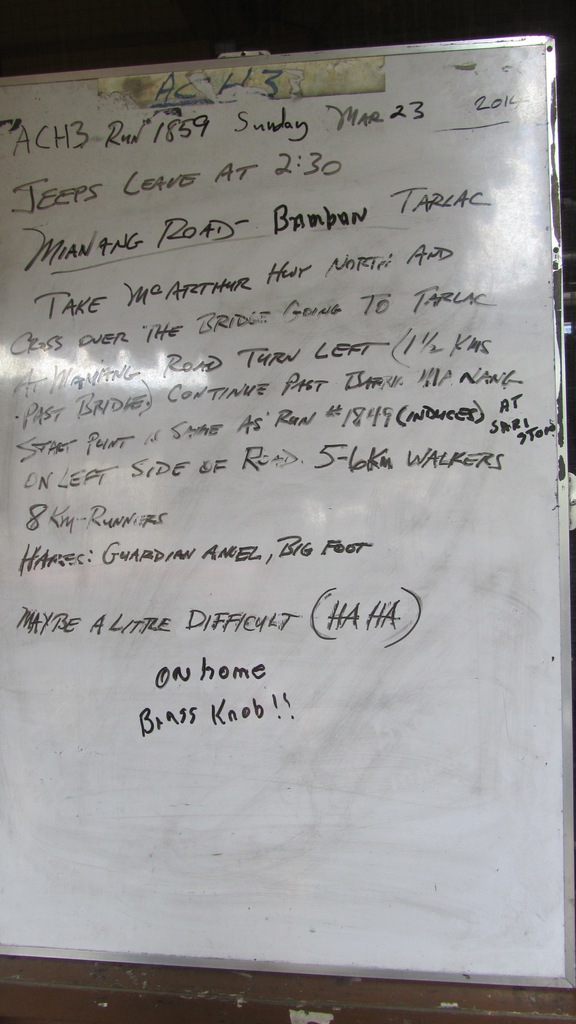 ACH3
"ACH3 Run" 1859 Sunday Mar 23 2014
JEEPS LEAVE AT 2:30
MIANANG ROAD- BAMBAN TARLAC
TAKE McARTHUR HWY NORTH AND
CROSS OVER THE BRIDGE GOING TO TARLAC
ROAD TURN LEFT (1 1/2 KMS
PAST BRIDGE) CONTINUE PAST NANG
START POINT IS SAME AS RUN #1849 (INDUCES) AT
SARI
STORE
ON LEFT SIDE OF ROAD. 5-6Km WALKERS
8 Km-RUNNERS
HARES: GUARDIAN ANGEL, BIG FOOT
MAYBE A LITTLE DIFFICULT (HA HA)
ON home
Brass Knob!!